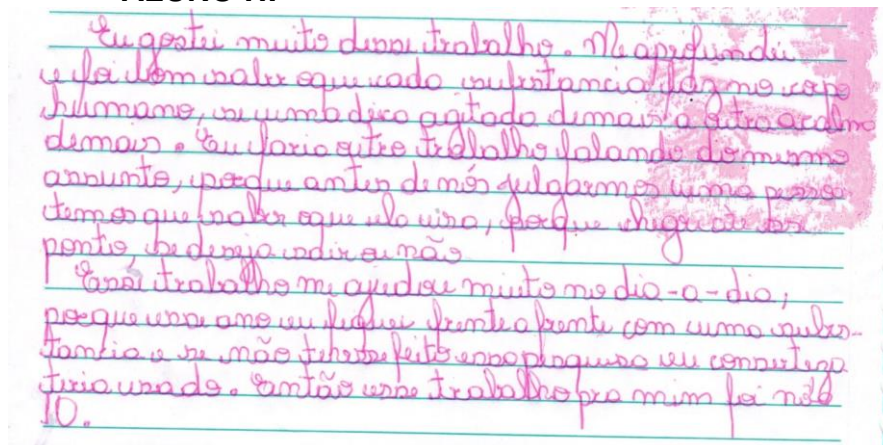 Eu gostei muito desse trabalho. Me aprofundei
e foi bom saber oque cada substancia faz no corpo
humano, se uma deixa agitado demais a outra acalma
demais. Eu faria outro trabalho falando do mesmo
assunto, porque antes de nós julgarmos uma pessoa
temos que saber oque ela usa, porque chegou até esse
ponto, se deseja sair ou não
Esse trabalho me ajudou muito no dia-a-dia,
porque esse ano eu fiquei frente a frente com uma subs-
tancia e se não tivesse feito essa pesquisa eu com certeza
teria usado. Então esse trabalho pra mim foi nota
10.